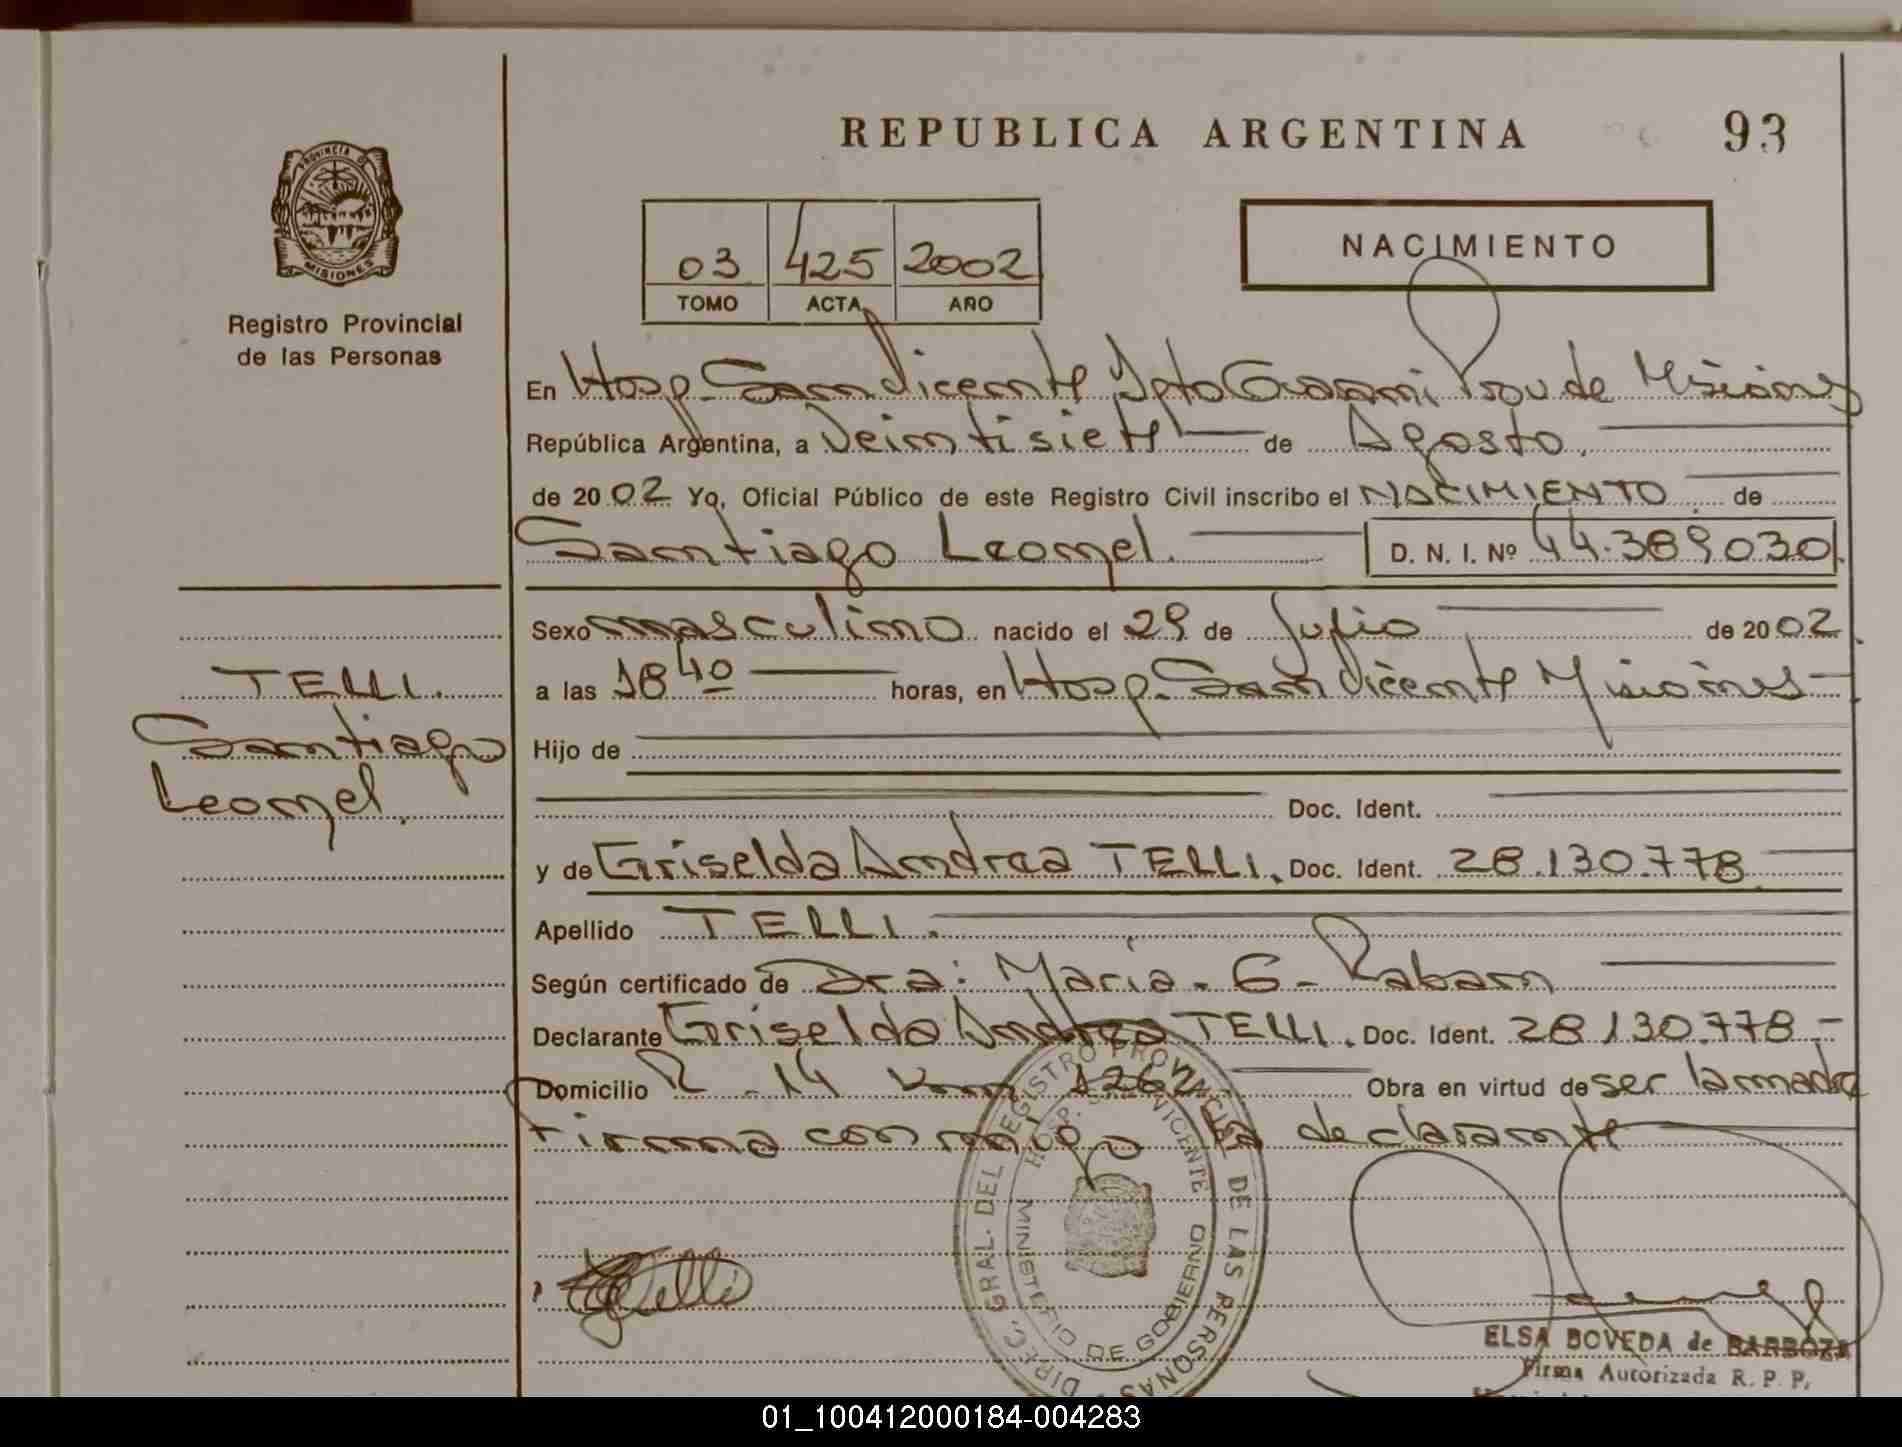 REPUBLICA ARGENTINA 93
PROVINCIA DE
MISIONES
Registro Provincial
de las Personas
03 425 2002
TOMO ACTA AÑO
NACIMIENTO
En Hosp. San Vicente Dpto Guarani Prov de Misiones
República Argentina, a Veintisiete de Agosto.
de 2002 Yo, Oficial Público de este Registro Civil inscribo el NACIMIENTO de
Santiago Leonel. D. N. I. Nº 44.389030
Sexo masculino nacido el 29 de Julio de 2002
a las 18 40 horas, en Hosp. San Vicente Misiones
Hijo de
Doc. Ident.
y de Griselda Andrea TELLI. Doc. Ident. 28.130.778
Apellido TELLI.
Según certificado de Dra: Maria. G. Raban
Declarante Griselda Andrea TELLI. Doc. Ident. 28130.778
Domicilio R. 14 Km 1262 Obra en virtud de ser la madre
Firma conmigo la declarante
TELLI.
Santiago
Leonel.
DIREC. GRAL. DEL REGISTRO PROVINCIAL DE LAS PERSONAS
HOSP. SAN VICENTE
MINISTERIO DE GOBIERNO
Telli
ELSA BOVEDA de BARBOZA
Firma Autorizada R. P. P.
01_100412000184-004283